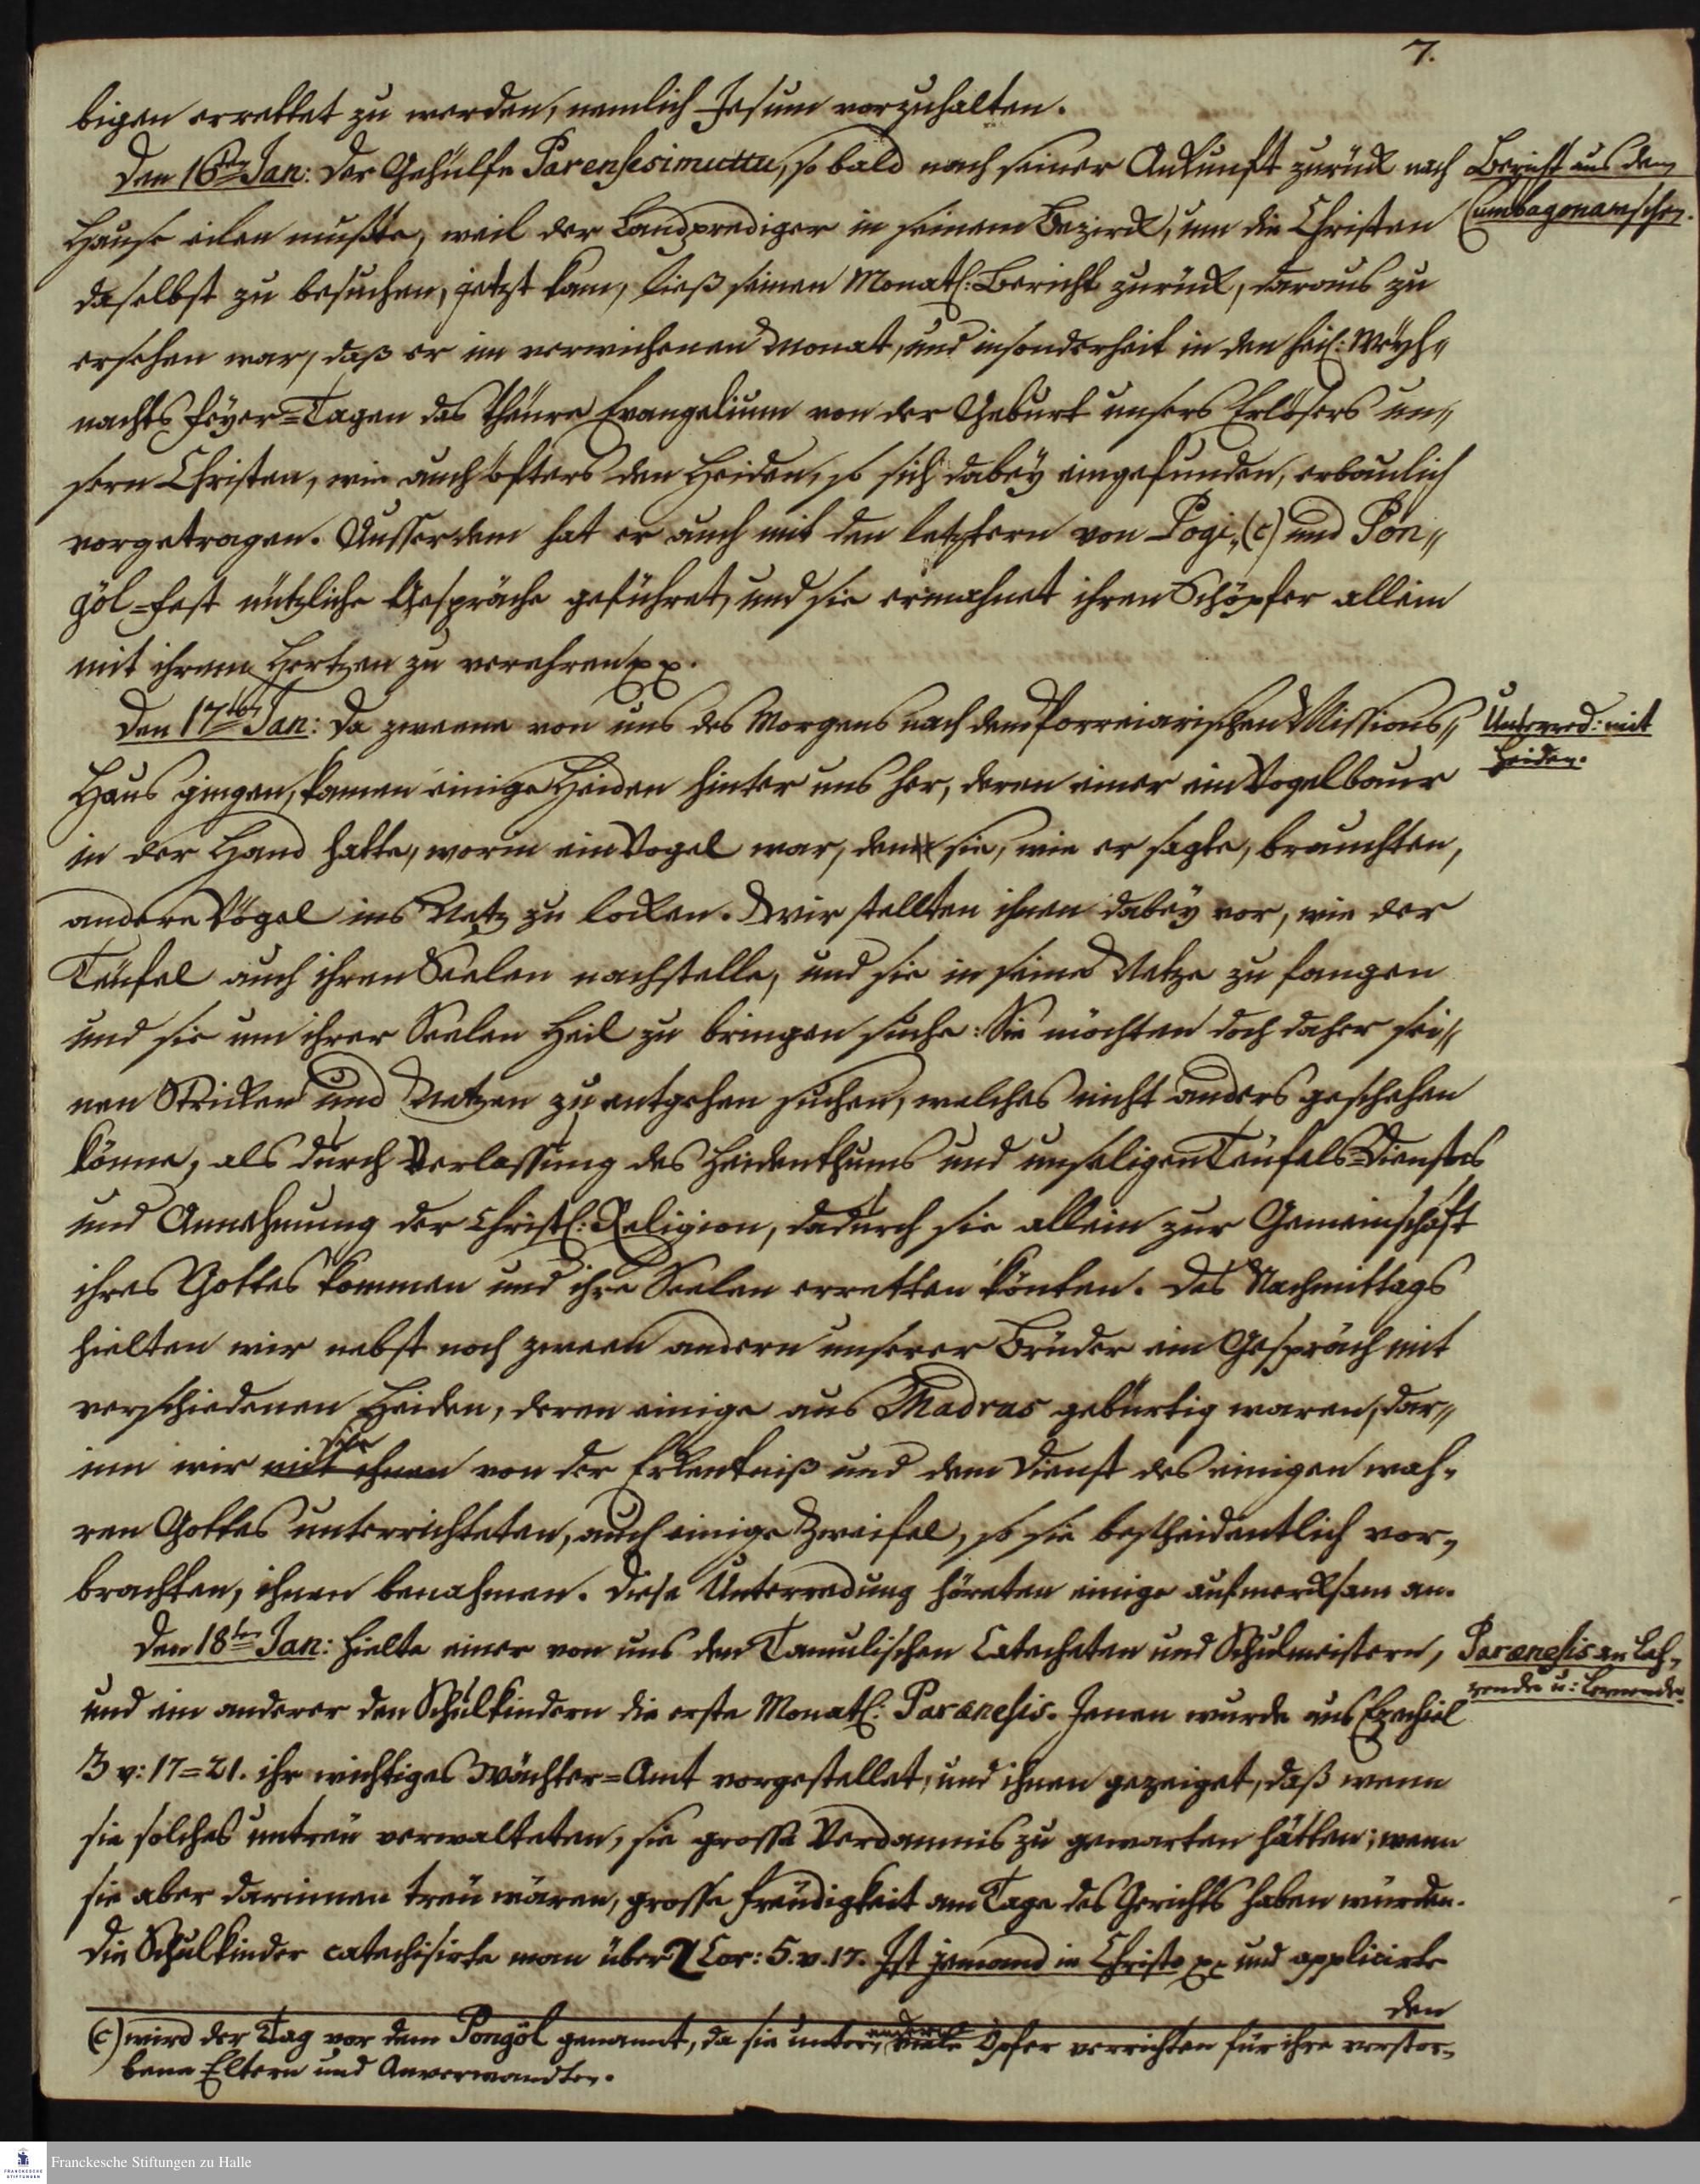 7.
bigen errettet zu werden, nemlich Jesum vorzuhalten.
Den 16ten Jan: Der Gehülfe Parensesimuttu, so bald nach seiner Ankunft zurück nach
Bericht aus dem
Cumbagonamschen.
Hause eilen mußte, weil der Landprediger in seinem Bezirck, um die Christen
daselbst zu besuchen, jetzt kam, ließ seinen Monatl: Bericht zurück, daraus zu
ersehen war, daß er im verwichenen Monat, und insonderheit in den heil: Weyh„
nachts feyer=Tagen das theure Evangelium von der Geburt unsers Erlösers un„
sern Christen, wie auch öfters den Heiden, so sich dabey eingefunden, erbaulich
vorgetragen. Ausserdem hat er auch mit den letztern von Pogi„(c) und Pon„
göl=fest nützliche Gespräche geführet, und sie ermahnet ihren Schöpfer allein
mit ihrem Hertzen zu verehren pp.
Den 17ten Jan: Da zweene von uns des Morgens nach dem Porreiarischen Missions„
Unterred: mit
Heiden.
Haus gingen, kamen einige Heiden hinter uns her, deren einer ein Vogelbaur
in der Hand hatte, worin ein Vogel war, den sie, wie er sagte, brauchten,
andere Vögel ins Netz zu locken. Wir stellten ihnen dabey vor, wie der
Teufel auch ihren Seelen nachstelle, und sie in seine Netze zu fangen
und sie um ihrer Seelen Heil zu bringen suche: Sie möchten doch daher sei„
nen Stricken und Netzen zu entgehen suchen, welches nicht anders geschehen
könne, als durch Verlassung des Heidenthums und unseligen Teufels=Dienstes
und Annehmung der Christl: Religion, dadurch sie allein zur Gemeinschaft
ihres Gottes kommen und ihre Seelen erretten könten. Des Nachmittags
hielten wir nebst noch zween andern unserer Brüder ein Gespräch mit
verschiedenen Heiden, deren einige aus Madras gebürtig waren, dar„
inn wir mit ihnen sie von der Erkentniß und dem Dienst des einigen wah„
ren Gottes unterrichteten, auch einige Zweifel, so sie bescheidentlich vor„
brachten, ihnen benahmen. Diese Unterredung höreten einige aufmercksam an.
Den 18ten Jan: hielte einer von uns den Tamulischen Catecheten und Schulmeistern,
Parænesis an Leh„
rende u: Lernende.
und ein anderer den Schulkindern die erste Monatl: Parænesis. Jenen wurde aus Ezechiel
3 v: 17=21. ihr wichtiges Wächter=Amt vorgestellet, und ihnen gezeiget, daß wenn
sie solches untreu verwalteten, sie grosse Verdamnis zu gewarten hätten; wenn
sie aber darinnen treu wären, grosse Freudigkeit am Tage des Gerichts haben würden.
Die Schulkinder catechisirte man über 2 Cor: 5. v. 17. Ist jemand in Christo pp und applicirte
den
(c) wird der Tag vor dem Pongöl genannt, da sie unter andern Opfer verrichten für ihre verstor„
bene Eltern und Anverwandten.